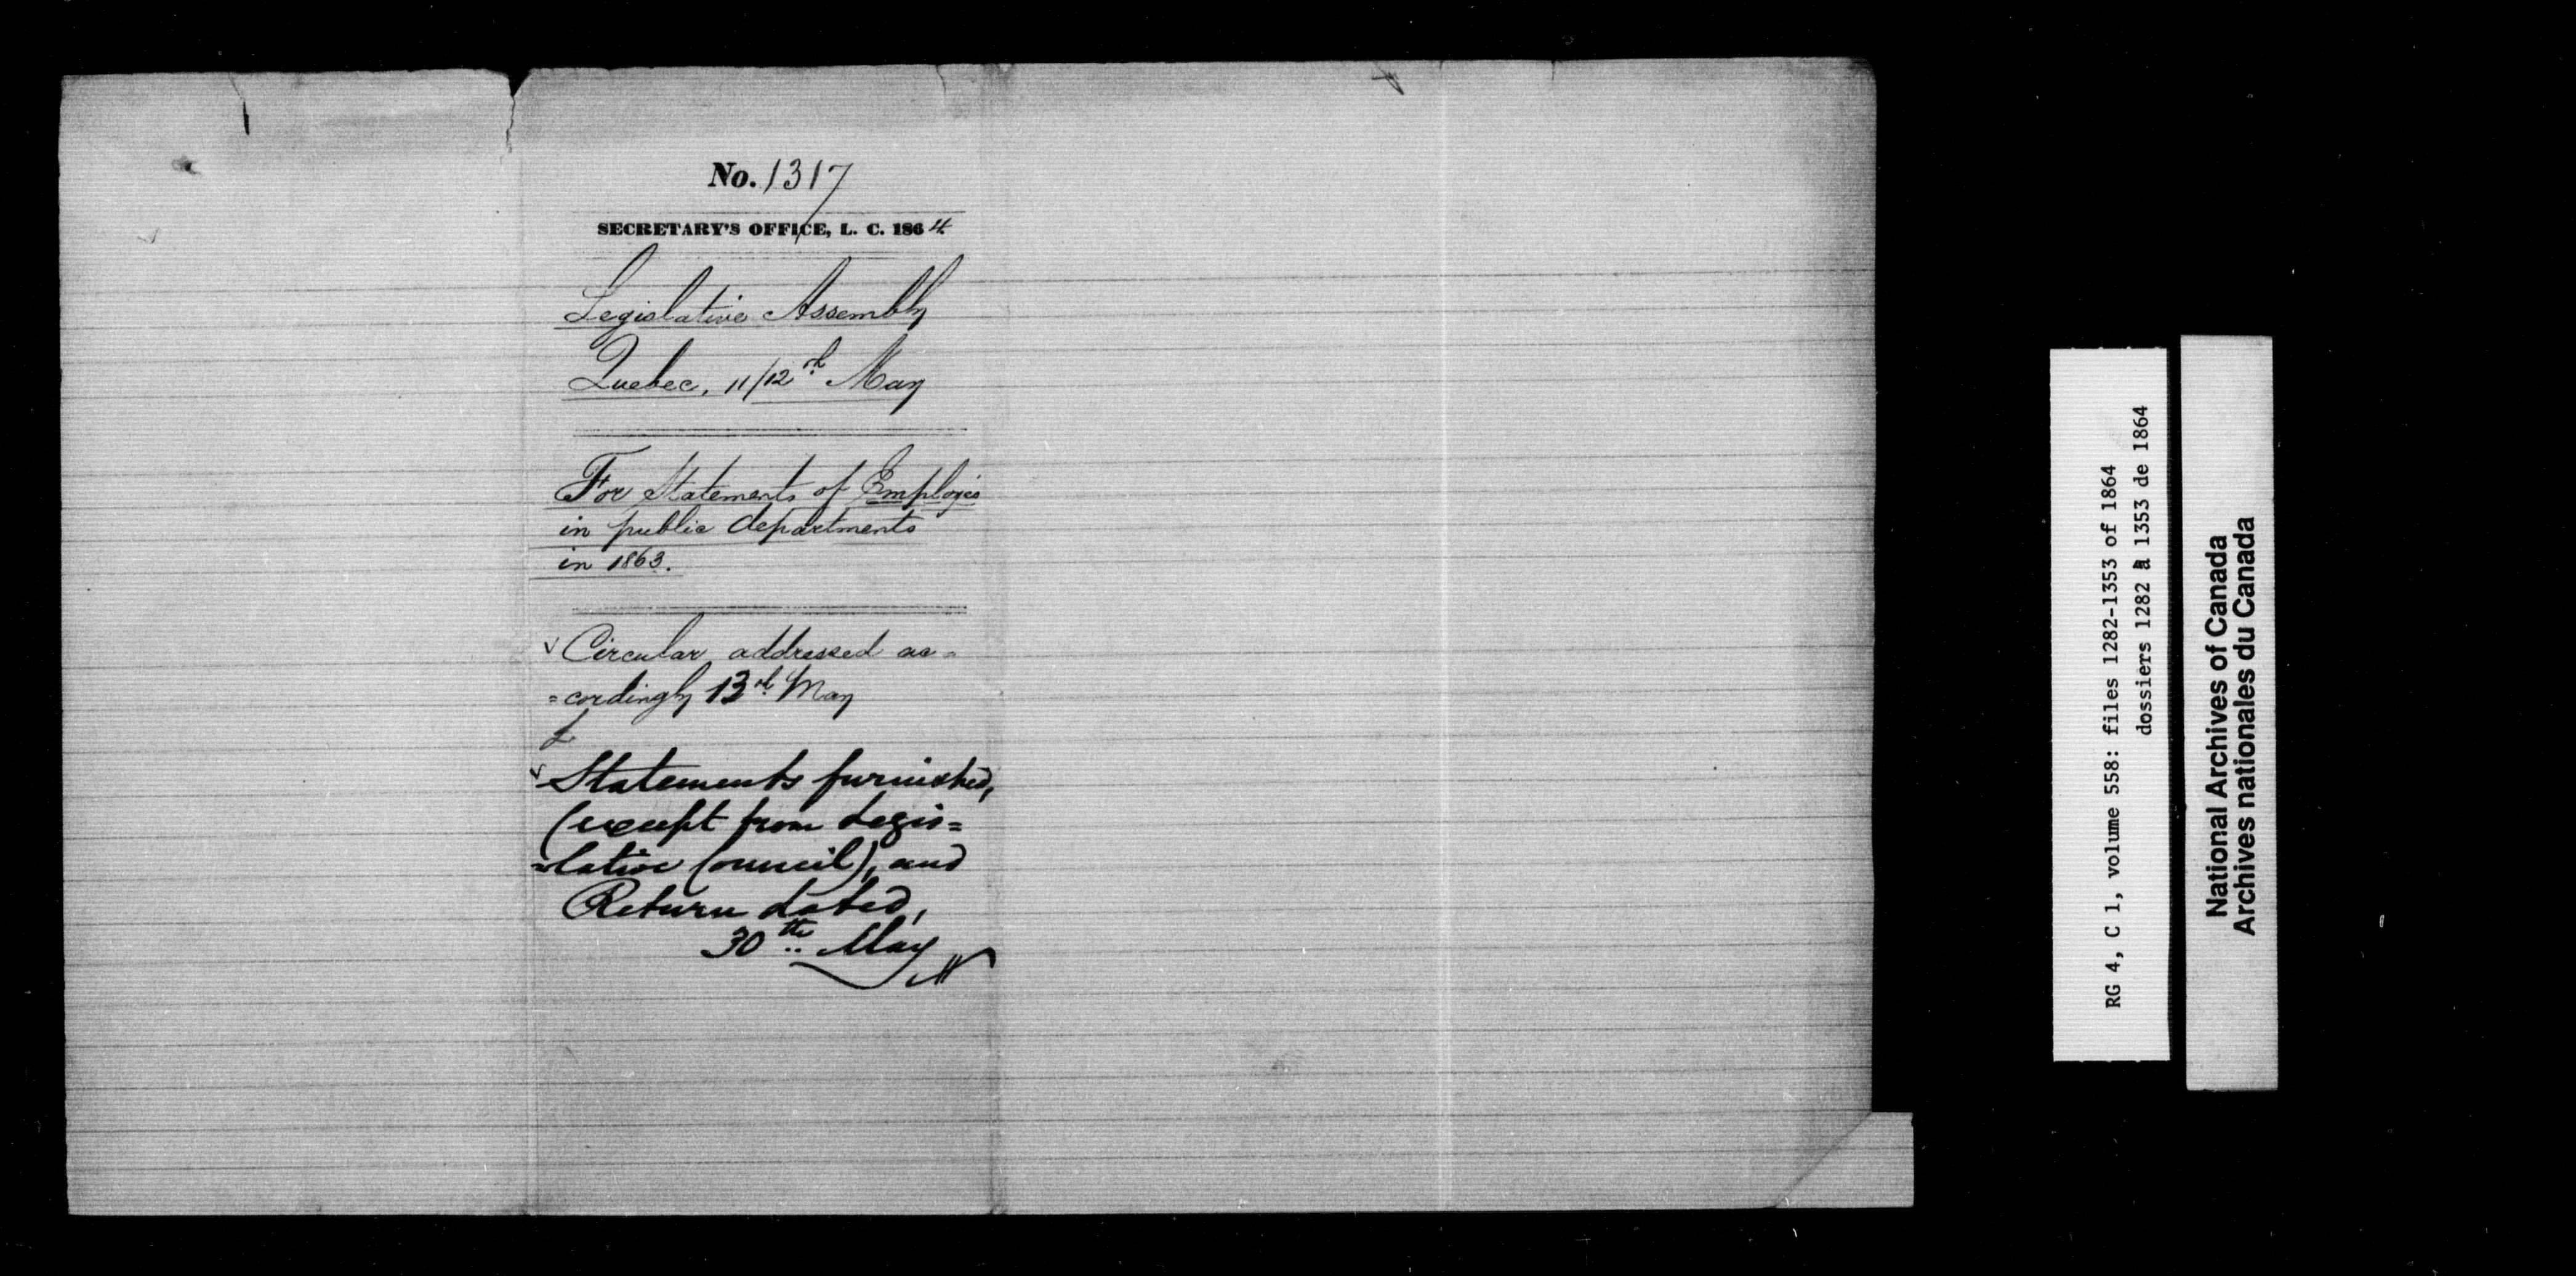 No. 1317
SECRETARY'S OFFICE, L. C. 1864
Legislative Assembly
Quebec, 11/12th May
For Statements of Employés
in public departments
in 1863.
Circular addressed ac=
=cordingly 13th May
Statements furnished,
(except from Legis=
=lative Council), and
Return dated,
30th May
RG 4, C 1, volume 558: files 1282-1353 of 1864
dossiers 1282 à 1353 de 1864
National Archives of Canada
Archives nationales du Canada